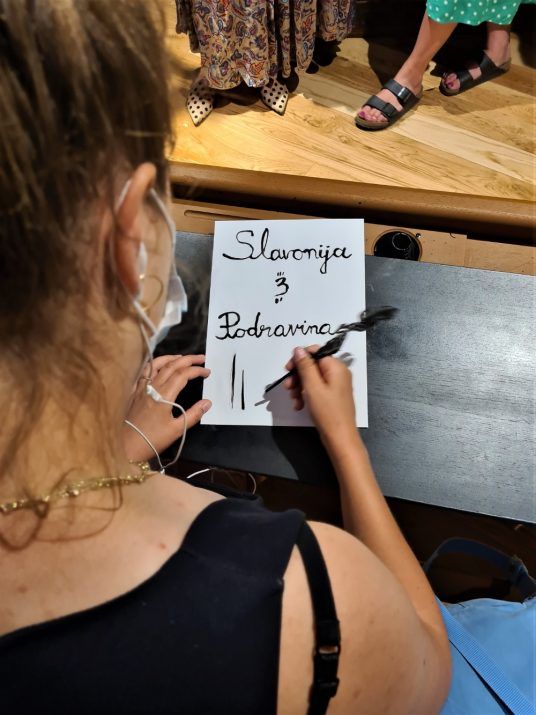 Slavonija
3
Podravina